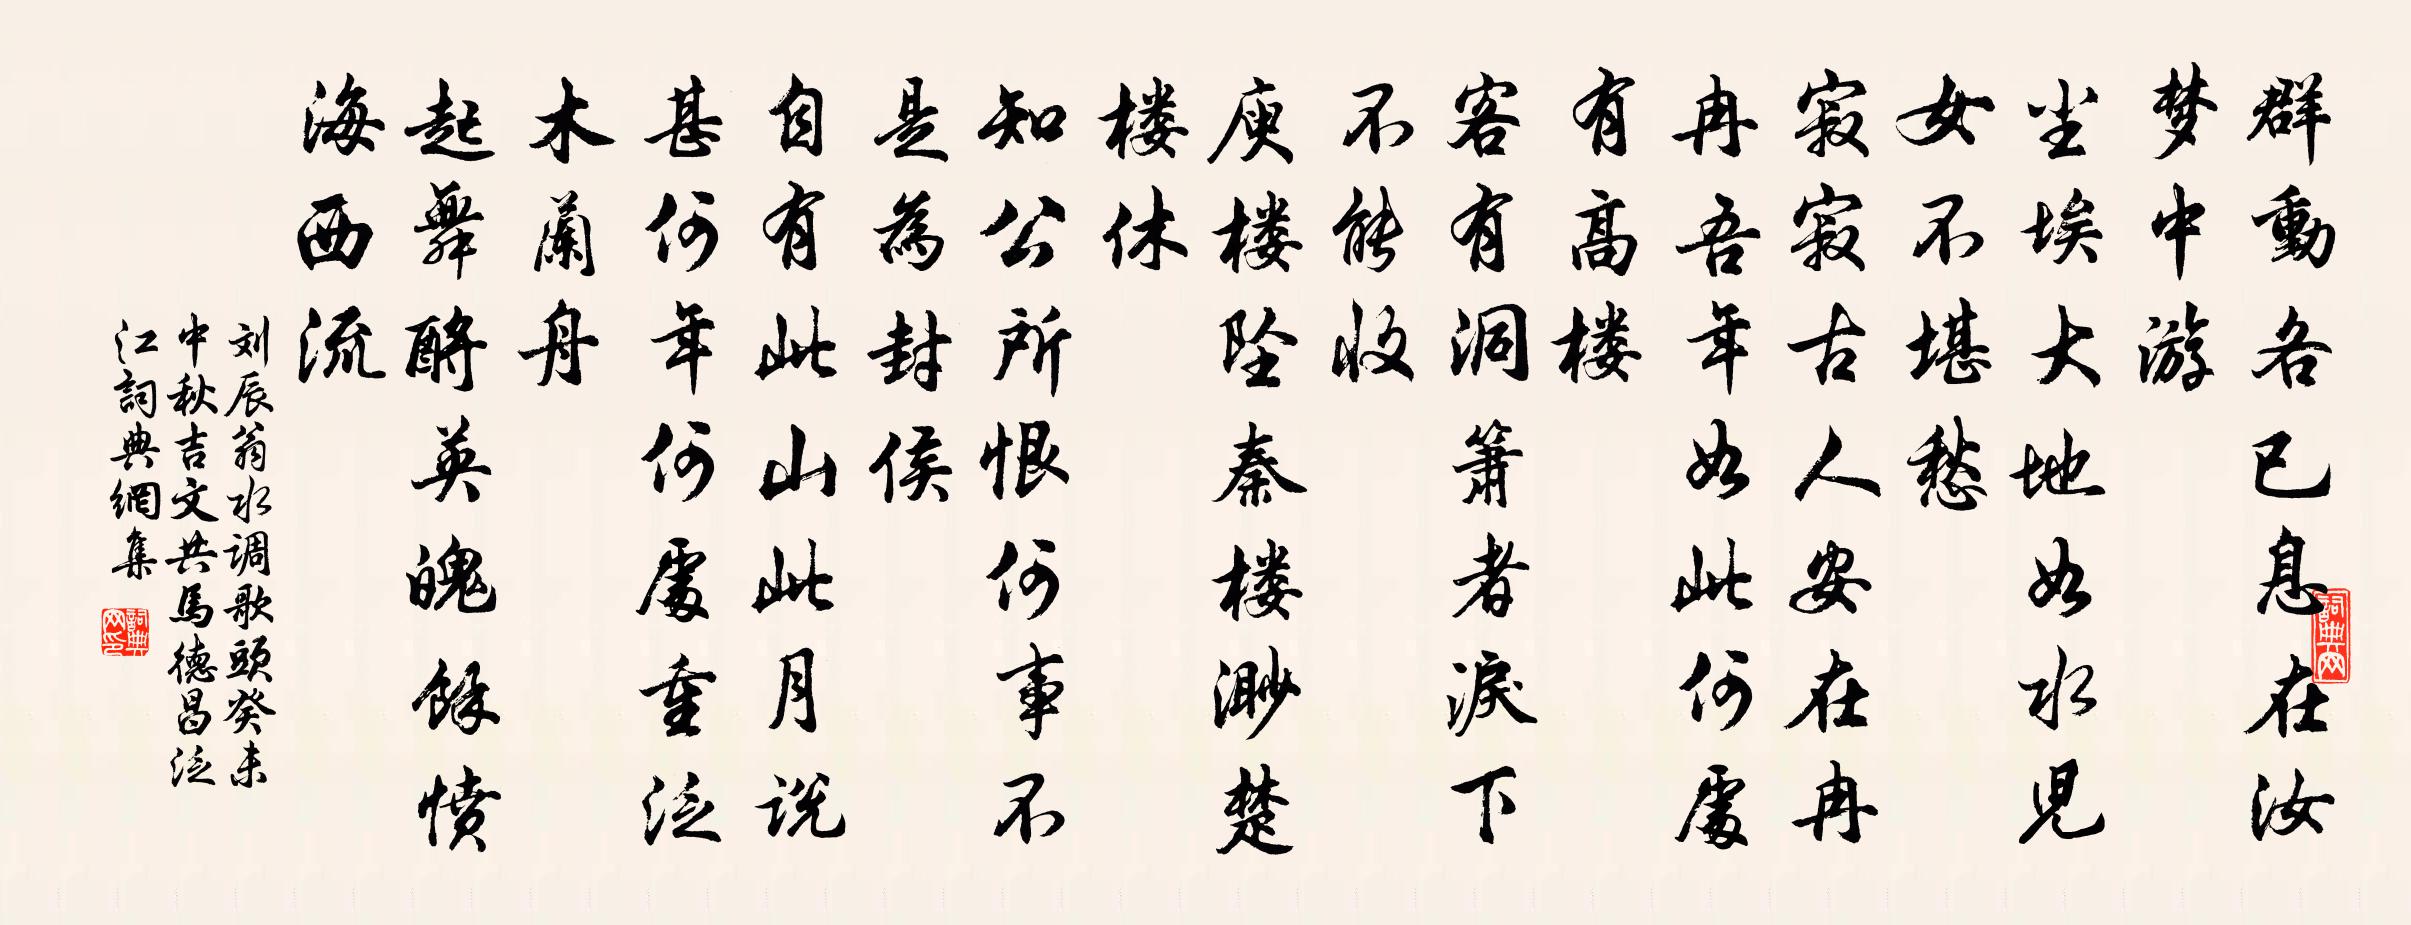 群動各已息在汝
梦中游
尘埃大地如水児
女不堪愁
寂寂古人安在冉
冉吾年如此何處
有高楼
客有洞箫者淚下
不能收
庾楼坠秦楼渺楚
楼休
知公所恨何事不
是為封侯
自有此山此月说
甚何年何處重泛
木蘭舟
起舞酹英魄餘愤
海西流
刘辰翁水调歌頭癸未
中秋吉文共馬德昌泛
江詞典網集
詞典网
詞典网印